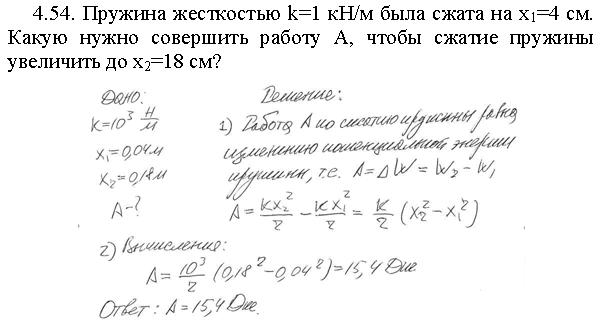 4.54. Пружина жесткостью k=1 кН/м была сжата на x₁=4 см.
Какую нужно совершить работу А, чтобы сжатие пружины
увеличить до x₂=18 см?
Дано:
k=10³ Н/м
x₁=0,04м
x₂=0,18м
A-?
Решение:
1) Работа А по сжатию пружины равна
изменению потенциальной энергии
пружины, т.е. A=ΔW=W₂-W₁
A=kx₂²/2-kx₁²/2=k/2(x₂²-x₁²)
2) Вычисления:
A=10³/2(0,18²-0,04²)=15,4 Дж
Ответ: A=15,4 Дж.